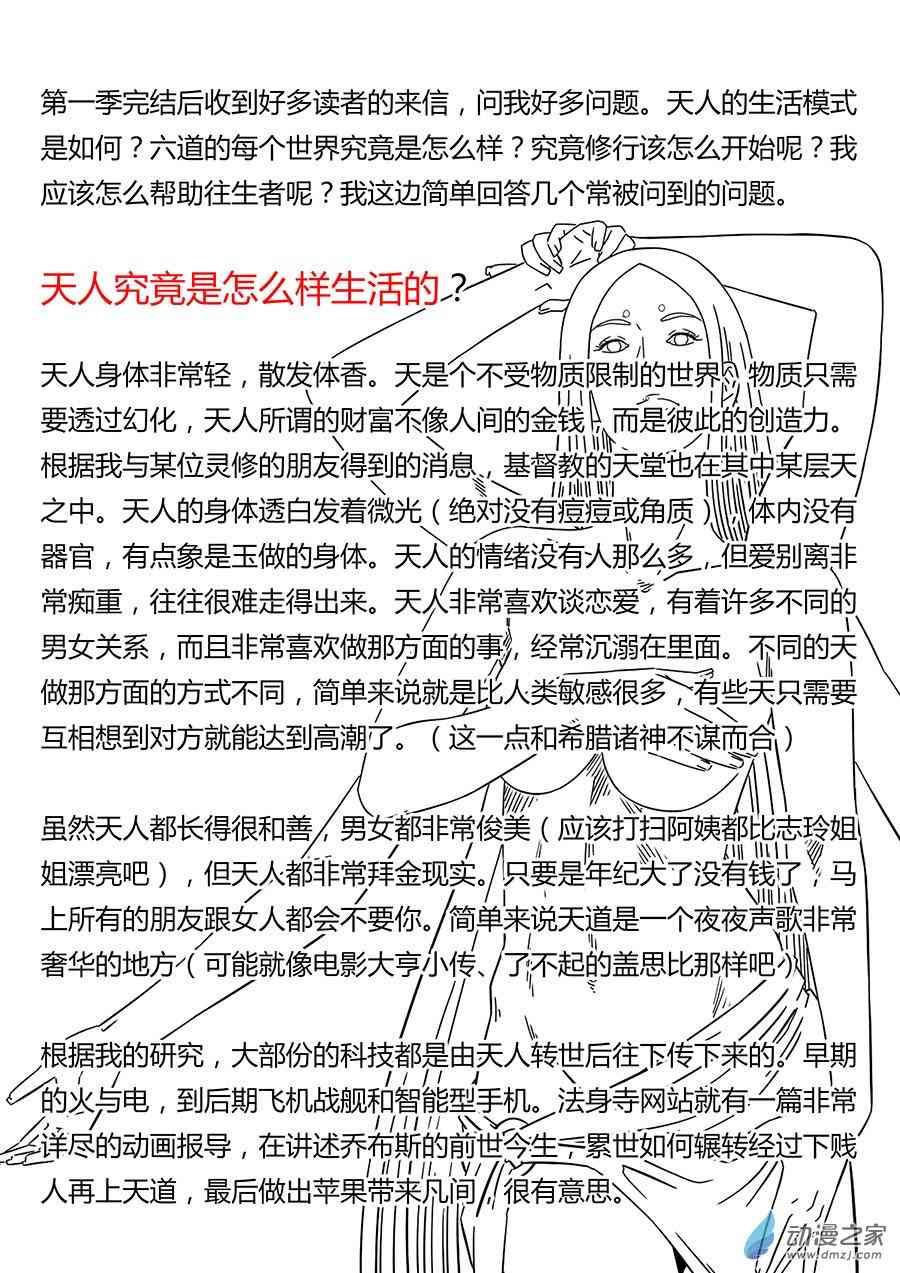 第一季完结后收到好多读者的来信，问我好多问题。天人的生活模式
是如何？六道的每个世界究竟是怎么样？究竟修行该怎么开始呢？我
应该怎么帮助往生者呢？我这边简单回答几个常被问到的问题。
天人究竟是怎么样生活的？
天人身体非常轻，散发体香。天是个不受物质限制的世界，物质只需
要透过幻化，天人所谓的财富不像人间的金钱，而是彼此的创造力。
根据我与某位灵修的朋友得到的消息，基督教的天堂也在其中某层天
之中。天人的身体透白发着微光（绝对没有痘痘或角质），体内没有
器官，有点象是玉做的身体。天人的情绪没有人那么多，但爱别离非
常痴重，往往很难走得出来。天人非常喜欢谈恋爱，有着许多不同的
男女关系，而且非常喜欢做那方面的事，经常沉溺在里面。不同的天
做那方面的方式不同，简单来说就是比人类敏感很多，有些天只需要
互相想到对方就能达到高潮了。（这一点和希腊诸神不谋而合）
虽然天人都长得很和善，男女都非常俊美（应该打扫阿姨都比志玲姐
姐漂亮吧），但天人都非常拜金现实。只要是年纪大了没有钱了，马
上所有的朋友跟女人都会不要你。简单来说天道是一个夜夜声歌非常
奢华的地方（可能就像电影大亨小传、了不起的盖思比那样吧）
根据我的研究，大部份的科技都是由天人转世后往下传下来的。早期
的火与电，到后期飞机战舰和智能型手机。法身寺网站就有一篇非常
详尽的动画报导，在讲述乔布斯的前世今生，累世如何辗转经过下贱
人再上天道，最后做出苹果带来凡间，很有意思。
动漫之家
www.dmzj.com